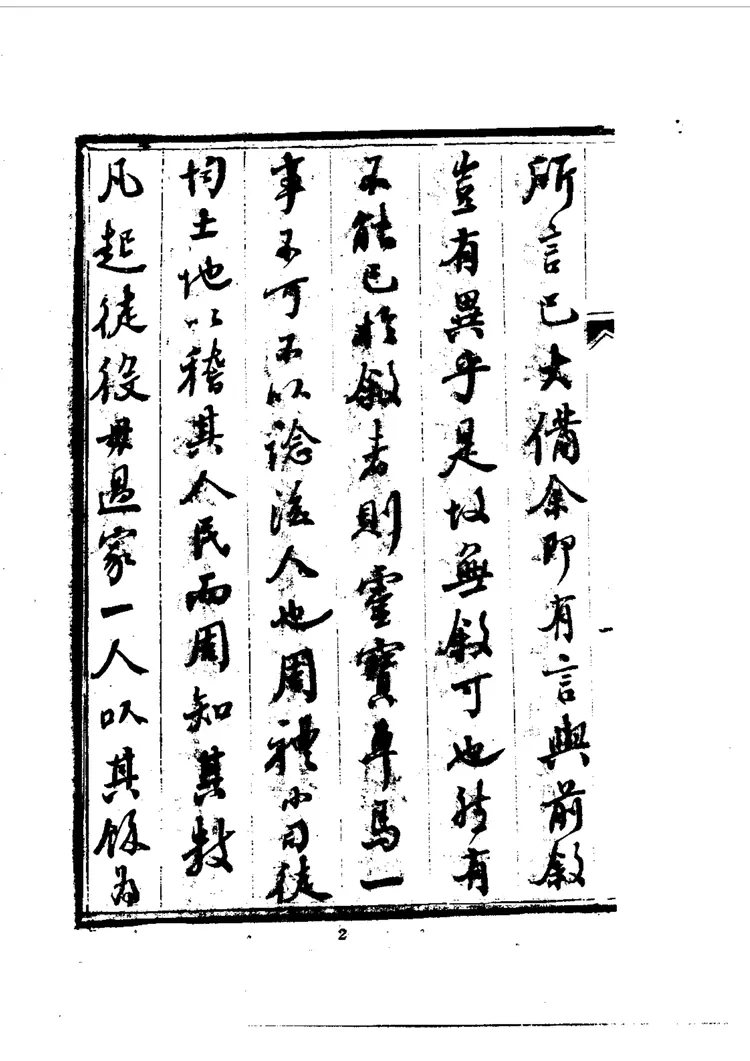 所言已大備余即有言與前敘
豈有異乎是故無敘可也然有
不能已於敘者則靈寶車馬一
事不可不以諗後人也周禮小司徒
均土地以稽其人民而周知其數
凡起徒役毋過家一人以其餘為
一
2